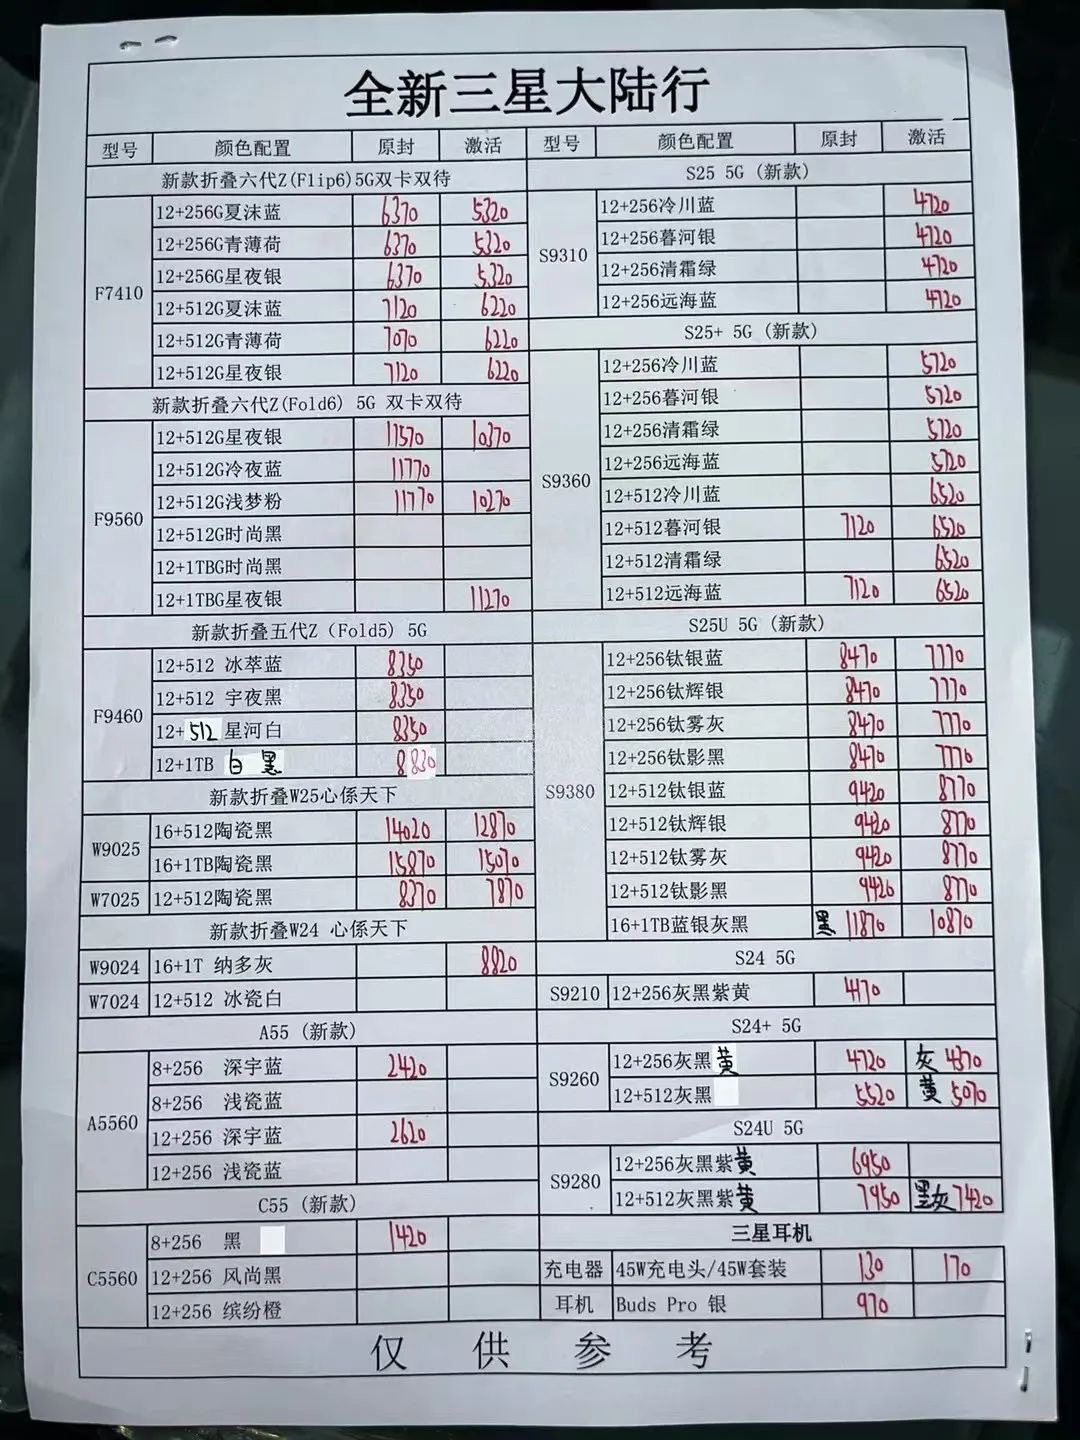 全新三星大陆行
型号 颜色配置 原封 激活
新款折叠六代Z(Flip6)5G双卡双待
F7410
12+256G夏沫蓝 6370 5320
12+256G青薄荷 6370 5320
12+256G星夜银 6370 5320
12+512G夏沫蓝 7120 6220
12+512G青薄荷 7070 6220
12+512G星夜银 7120 6220
新款折叠六代Z(Fold6) 5G 双卡双待
F9560
12+512G星夜银 11570 10370
12+512G冷夜蓝 11770
12+512G浅梦粉 11770 10270
12+512G时尚黑
12+1TBG时尚黑
12+1TBG星夜银 11270
新款折叠五代Z（Fold5) 5G
F9460
12+512 冰萃蓝 8350
12+512 宇夜黑 8350
12+512 星河白 8350
12+1TB 白 黑 8830
新款折叠W25心係天下
W9025
16+512陶瓷黑 14020 12870
16+1TB陶瓷黑 15870 15070
W7025 12+512陶瓷黑 8370 7870
新款折叠W24 心係天下
W9024 16+1T 纳多灰 8820
W7024 12+512 冰瓷白
A55 (新款)
A5560
8+256 深宇蓝 2420
8+256 浅瓷蓝
12+256 深宇蓝 2620
12+256 浅瓷蓝
C55 (新款)
C5560
8+256 黑 1420
12+256 风尚黑
12+256 缤纷橙
型号 颜色配置 原封 激活
S25 5G (新款)
S9310
12+256冷川蓝 4720
12+256暮河银 4720
12+256清霜绿 4720
12+256远海蓝 4720
S25+ 5G (新款)
S9360
12+256冷川蓝 5720
12+256暮河银 5720
12+256清霜绿 5720
12+256远海蓝 5720
12+512冷川蓝 6520
12+512暮河银 7120 6520
12+512清霜绿 6520
12+512远海蓝 7120 6520
S25U 5G (新款)
S9380
12+256钛银蓝 8470 7770
12+256钛辉银 8470 7770
12+256钛雾灰 8470 7770
12+256钛影黑 8470 7770
12+512钛银蓝 9420 8770
12+512钛辉银 9420 8770
12+512钛雾灰 9420 8770
12+512钛影黑 9420 8770
16+1TB蓝银灰黑 黑 11870 10870
S24 5G
S9210 12+256灰黑紫黄 4170
S24+ 5G
S9260
12+256灰黑黄 4720 灰 4370
12+512灰黑 5520 黄 5070
S24U 5G
S9280
12+256灰黑紫黄 6950
12+512灰黑紫黄 7950 黑灰 7420
三星耳机
充电器 45W充电头/45W套装 130 170
耳机 Buds Pro 银 970
仅 供 参 考